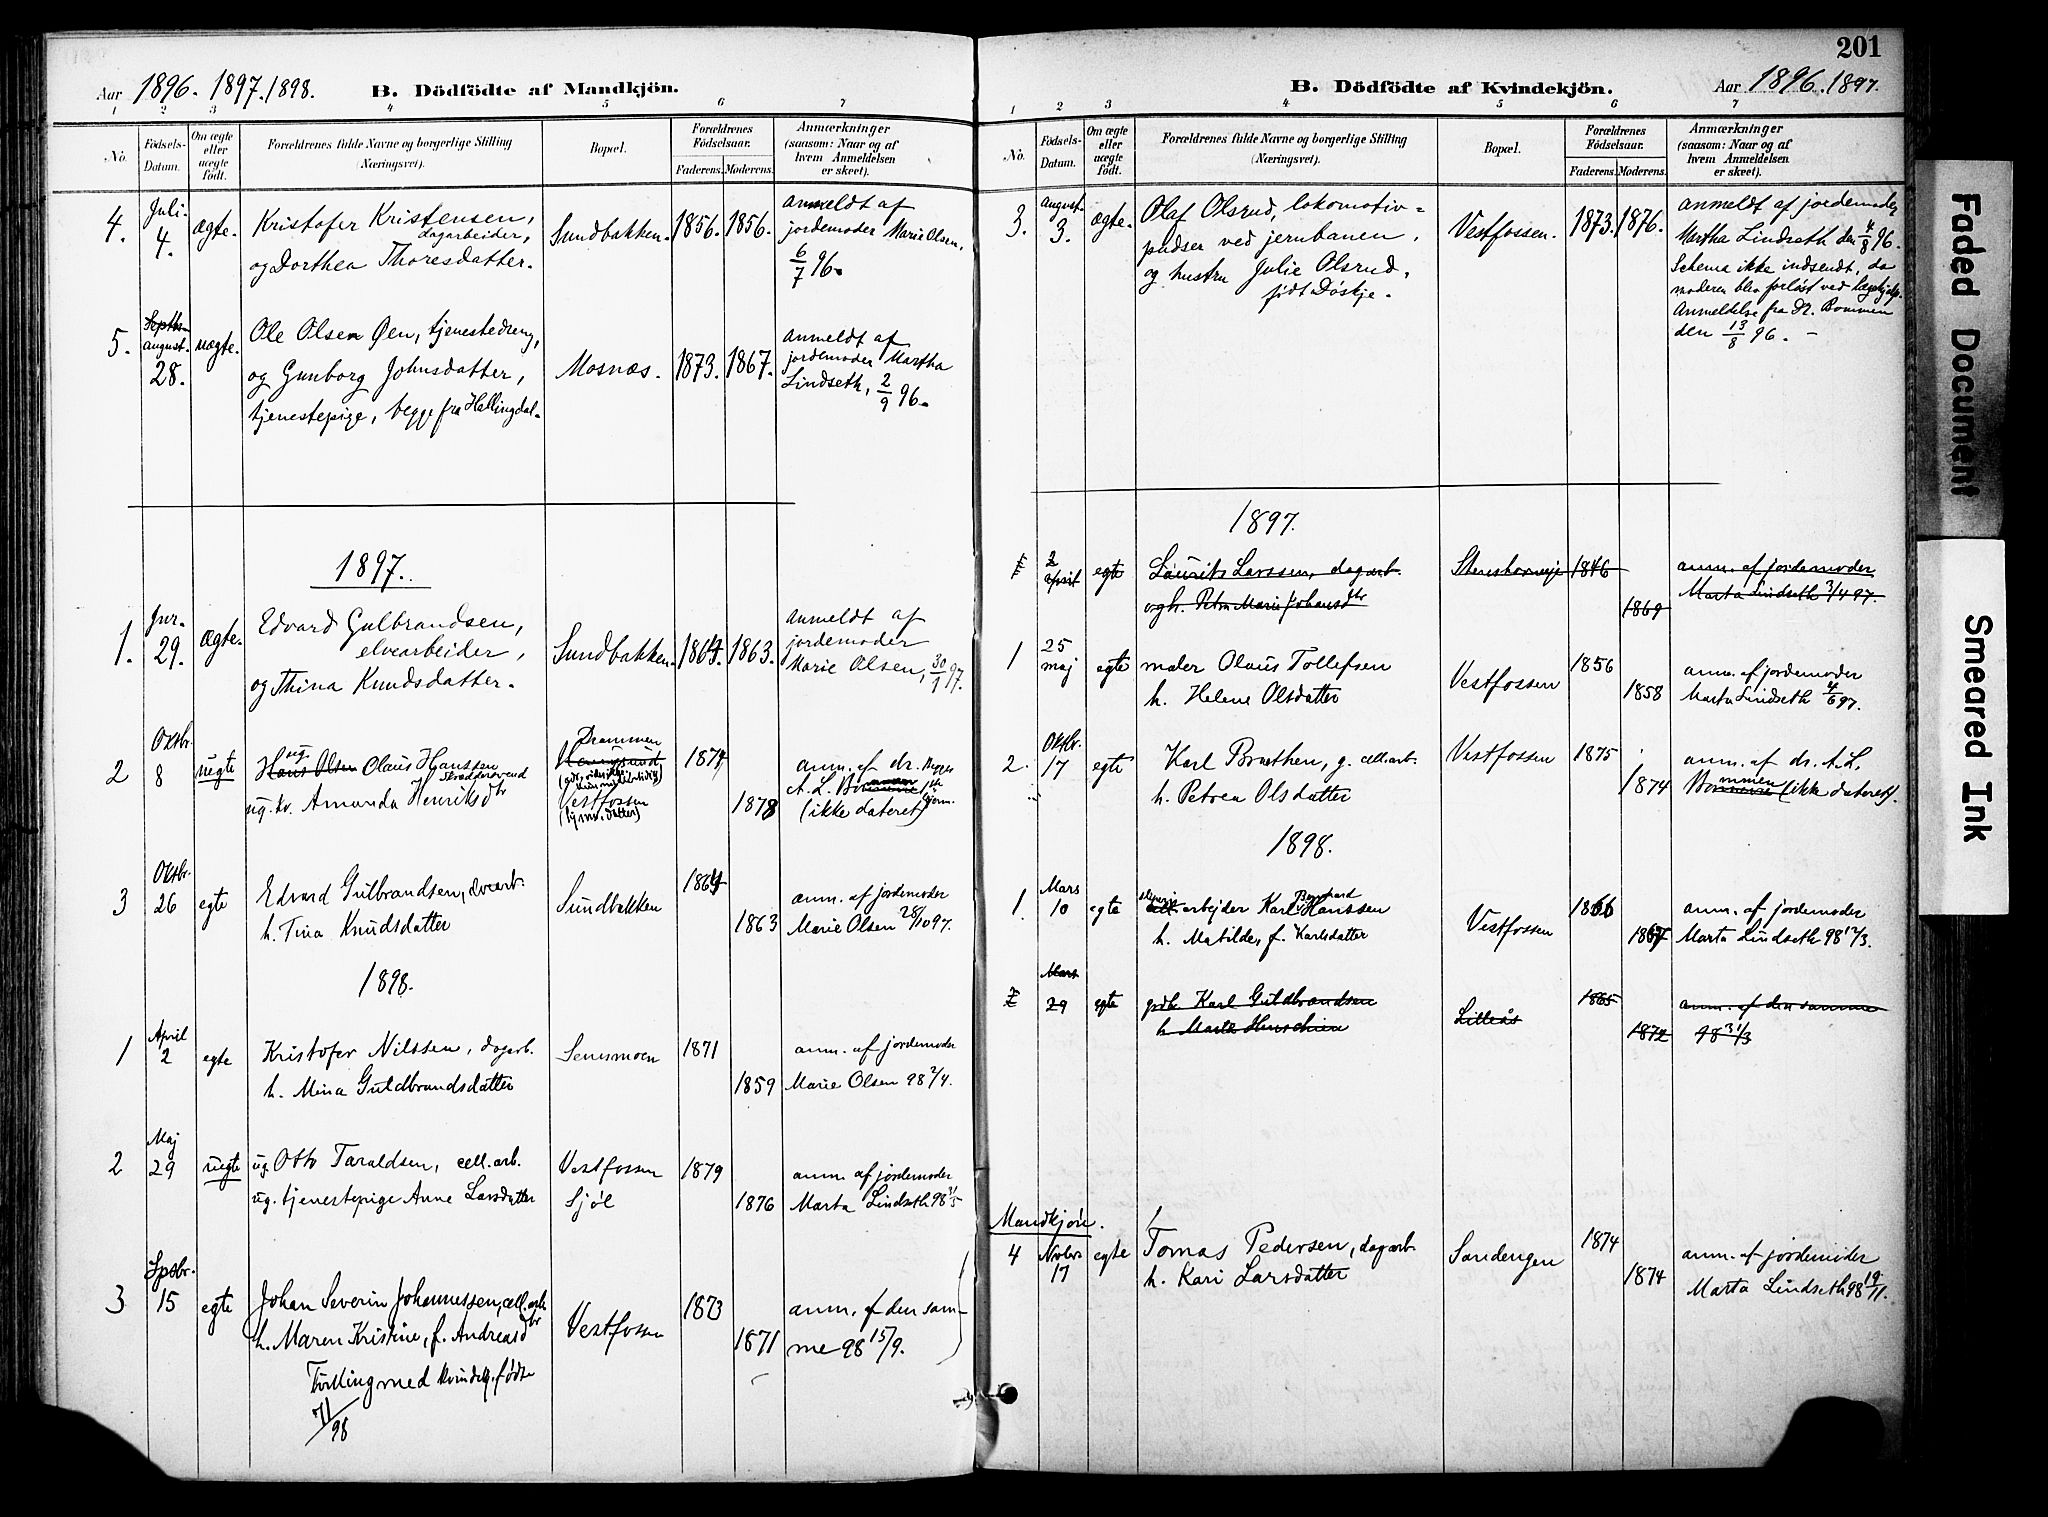 Aar 1896. 1897. 1898.
B. Dödfödte af Mandkjön.
1 2 3 4 5 6 7
No.
Födsels-Datum.
Om ægte eller uægte födt.
Forældrenes fulde Navne og borgerlige Stilling (Næringsvei).
Bopæl.
Forældrenes Födselsaar.
Faderens. Moderens.
Anmærkninger (saasom: Naar og af hvem Anmeldelsen er skeet).
4. Juli 4. ægte. Kristofer Kristensen, dagarbeider, Sundbakken. 1856. 1856. anmeldt af
og Dorthea Thoresdatter. jordemoder Marie Olsen,
6/7 96.
5. Septbr. august. 28. uægte. Ole Olsen Øen, tjenestedreng, Mosnæs. 1873. 1867. anmeldt af
og Gunborg Johnsdatter, jordemoder Martha
tjenestepige, begge fra Hallingdal. Lindseth, 2/9 96.
1897.
1. Jnr. 29. Ægte. Edvard Gulbrandsen, Sundbakken. 1864. 1863. anmeldt af
elvearbeider, jordemoder
og Thina Knudsdatter. Marie Olsen, 30/1 97.
2 Oktbr. 8 uegte ug. Hans Olsen Claus Hanssen Drammen 1874 anm. af dr.
ug. kv. Amanda Henriksdtr Vestfossen 1878 A. L.
(ikke dateret)
3 Oktbr. 26 egte Edvard Gulbrandsen, Sundbakken 1864 anm. af jordemoder
h. Tina Knudsdatter 1863 Marie Olsen 28/10 97.
1898.
1 April 2 egte Kristofer Nilssen, dagarb. Semsmoen 1871 anm. af jordemoder
h. Mina Guldbrandsdatter 1859 Marie Olsen 98 2/4.
2 Maj 29 uegte ug. Otto Taraldsen, cell.arb. Vestfossen 1879 anm. af jordemoder
ug. tjenestepige Anne Larsdatter Sjøl 1876 Marta Lindseth 98 31/5
3 Spbr. 15 egte Johan Severin Johannessen, cell.arb. Vestfossen 1873 anm. af den sam-
h. Maren Kristine, f. Andreasdtr 1871 me 98 15/9.
Tvilling med kvindelig. fødte
71/98
201
B. Dödfödte af Kvindekjön.
Aar 1896. 1897.
1 2 3 4 5 6 7
No.
Födsels-Datum.
Om ægte eller uægte födt.
Forældrenes fulde Navne og borgerlige Stilling (Næringsvei).
Bopæl.
Forældrenes Födselsaar.
Faderens. Moderens.
Anmærkninger (saasom: Naar og af hvem Anmeldelsen er skeet).
3. august. 3. ægte. Olaf Olsrud, lokomotiv= Vestfossen. 1873. 1876. anmeldt af jordemoder
pudser ved jernbanen, Martha Lindseth den 4/8 96.
og hustru Julie Olsrud, Schema ikke indsendt, da
født Døskje. moderen blev forløst ved lægehjælp.
Anmeldelse fra Dr. Bommen
den 13/8 96. –
1897.
1 2 april egte Laurits Larssen, dagarb. 1846 anm. af jordemoder
og h. Petra Marie Johansdtr 1869 Marta Lindseth 3/4 97.
1 25 maj egte maler Olaus Tollefsen Vestfossen 1856 anm. af jordemoder
h. Helene Olsdatter 1858 Marta Lindseth 4/6 97.
2. Oktbr. 17 egte Karl Braathen, g. cell.arb. Vestfossen 1875 anm. af dr. A. L.
h. Petrea Olsdatter 1874 Bommen (ikke dateret).
1898.
1 Mars 10 egte arbejder Karl Bernhard Hanssen Vestfossen 1866 anm. af jordemoder
h. Matilde, f. Karlsdatter 1867 Marta Lindseth 98 12/3.
2 Mars 29 egte Karl Guldbrandsen Lilleås 1865 anm. af den samme
1872 98 31/3
Mandkjøn.
4 Novbr. 17 egte Tomas Pedersen, dagarb. Sandengen 1874 anm. af jordemoder
h. Kari Larsdatter 1874 Marta Lindseth 98 19/11.
Faded Document
Smeared Ink